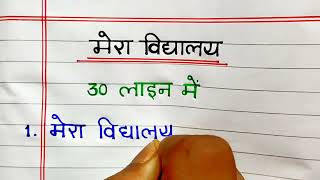 मेरा विद्यालय
30 लाइन में
1. मेरा विद्यालय